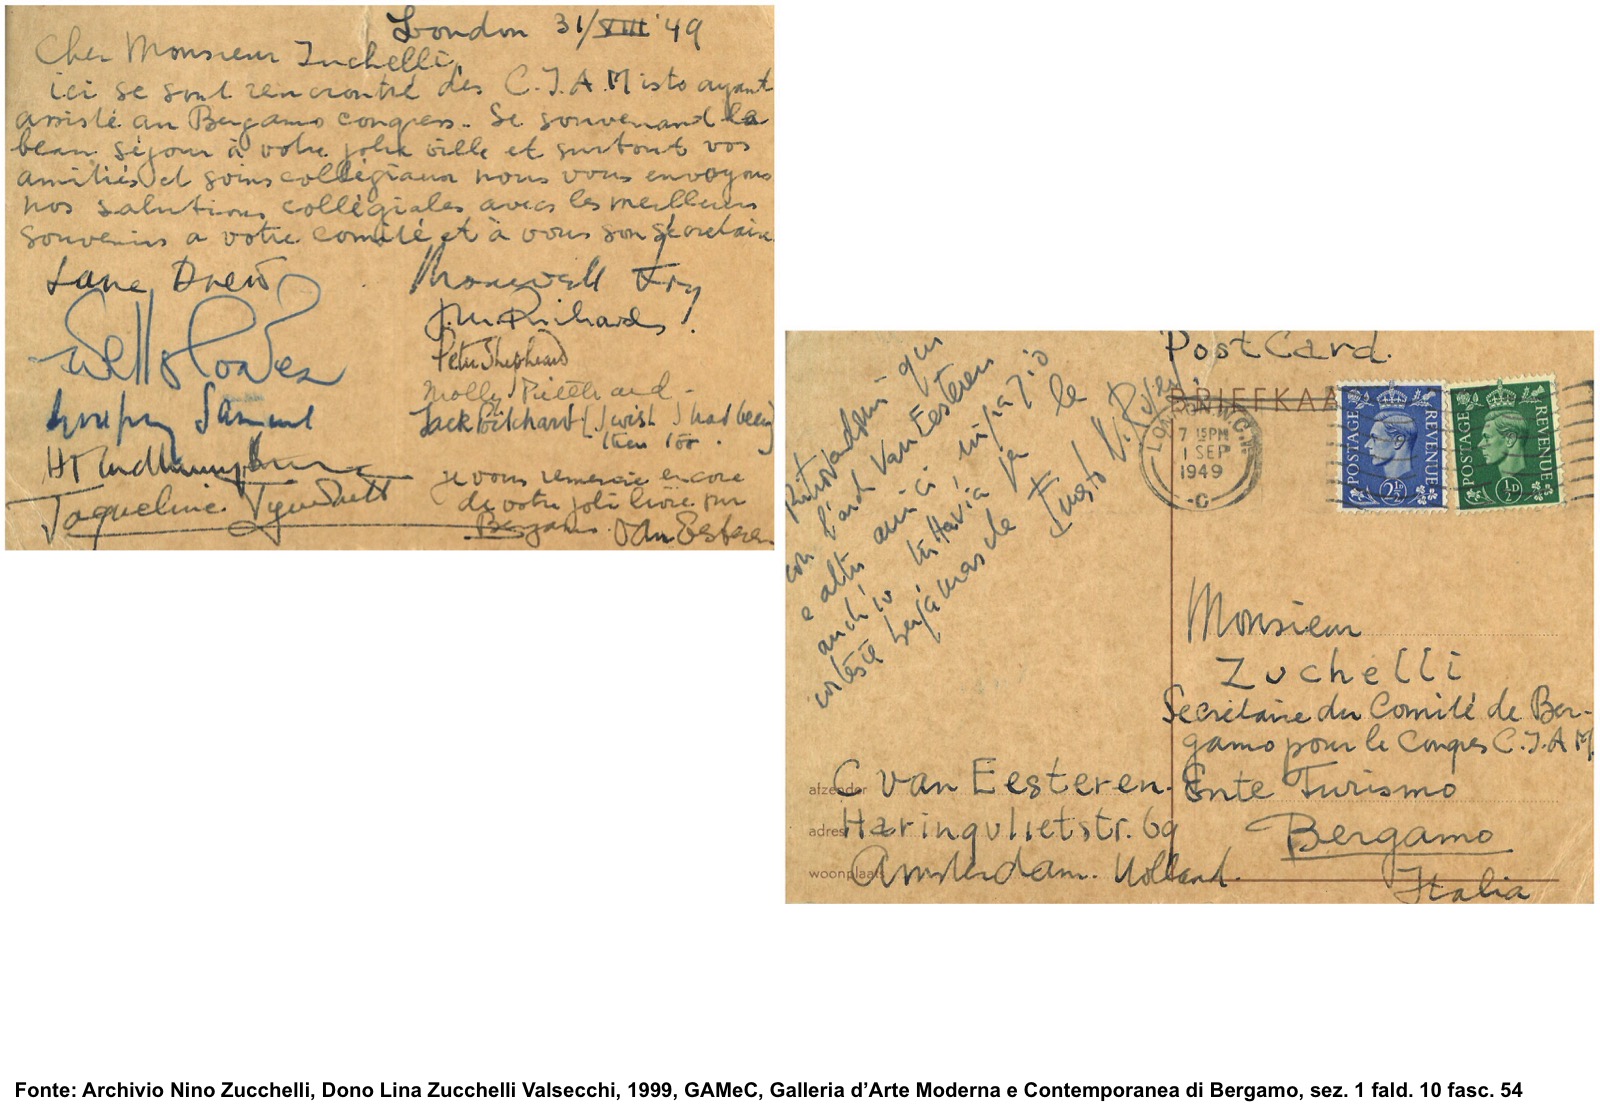 London 31/VIII '49
Cher Monsieur Zuchelli,
ici se sont rencontré des C.I.A.Misto ayant
assisté au Bergamo congress. Se souvenand la
beau séjour à votre jolie ville et surtout vos
amitiés et soins collégiaux nous vous envoyons
nos salutions collégiales avec les meilleurs
souvenirs a votre comité et à vous son secretaire.
Jane Drew
Maxwell Fry
J.M. Richards!
Wells Coates
Peter Shepheard
Molly
Godfrey Samuel
Jack Pritchard (I wish I had been
then too.
Jaqueline Tyrwhitt
je vous remercie encore
de votre joli livre sur
Bergamo. Van Eesteren
Post Card.
BRIEFKAA
LONDON W.C.
7 15PM
1 SEP
1949
-C-
POSTAGE REVENUE
2½D
POSTAGE REVENUE
½D
Ritrovandomi qui
con l'arch Van Eesteren
e altri amici
anch'io
Ernesto N. Rogers
Monsieur
Zuchelli
Secrétaire du Comité de Ber-
gamo pour le Congres C.I.A.M.
Ente Turismo
Bergamo
Italia
afzender C van Eesteren.
adres Haringvlietstr. 69
woonplaats Amsterdam. Holland.
Fonte: Archivio Nino Zucchelli, Dono Lina Zucchelli Valsecchi, 1999, GAMeC, Galleria d’Arte Moderna e Contemporanea di Bergamo, sez. 1 fald. 10 fasc. 54